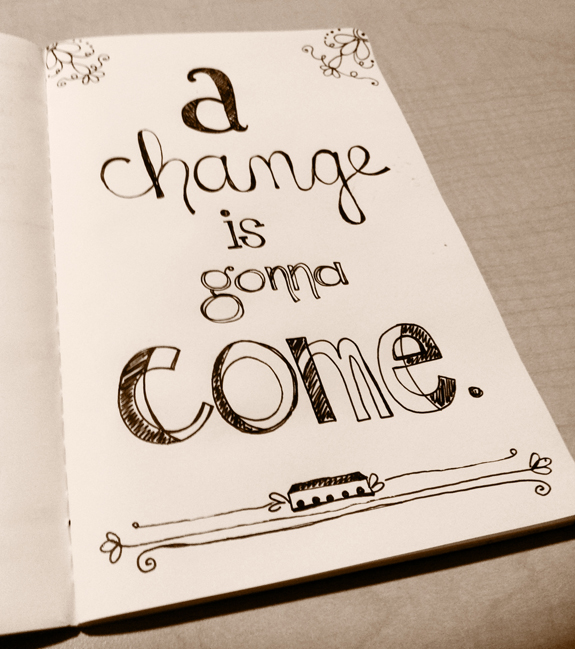 a
change
is
gonna
come.